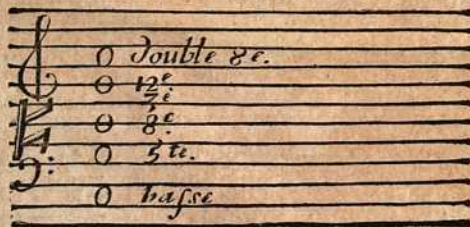 double 8e.
12e.
8e.
5te.
baſse